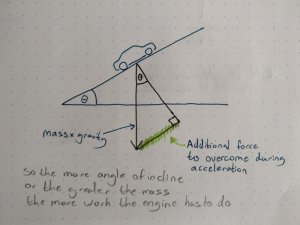 θ
θ
mass x gravity
Additional force
to overcome during
acceleration
So the more angle of incline
or the greater the mass
the more work the engine has to do